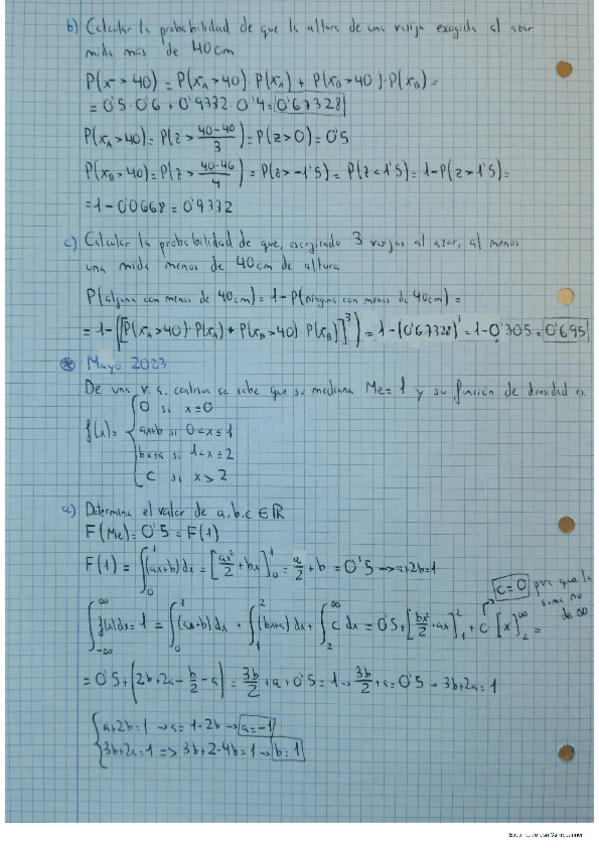 b) Calcular la probabilidad de que la altura de una varija exogida al azar
mida más de 40cm
P(x > 40) = P(xA > 40)·P(xA) + P(xB > 40)·P(xB) =
= 0'5·0'6 + 0'9332·0'4 = 0'67328
P(xA > 40) = P(z > 40-40/3) = P(z > 0) = 0'5
P(xB > 40) = P(z > 40-46/4) = P(z > -1'5) = P(z < 1'5) = 1-P(z > 1'5) =
= 1 - 0'0668 = 0'9332
c) Calcular la probabilidad de que, escogiendo 3 varijas al azar, al menos
una mida menos de 40cm de altura
P(alguna con menos de 40cm) = 1 - P(ninguna con menos de 40cm) =
= 1-([P(xA > 40)·P(xA) + P(xB > 40)·P(xB)]³) = 1-(0'67328)³ = 1-0'305 = 0'695
Mayo 2023
De una v.a. continua se sabe que su mediana Me = 1 y su función de densidad es
f(x) = { 0 si x ≤ 0
ax+b si 0 < x ≤ 1
bx+a si 1 < x ≤ 2
C si x > 2
a) Determina el valor de a, b, c ∈ ℝ
F(Me) = 0'5 = F(1)
F(1) = ∫₀¹ (ax+b) dx = [ax²/2 + bx]₀¹ = a/2 + b = 0'5 → a+2b=1
c=0 para que la
suma no
de ∞
∫₋∞^∞ f(x)dx = 1 = ∫₀¹ (ax+b) dx + ∫₁² (bx+a) dx + ∫₂^∞ C dx = 0'5 + [bx²/2 + ax]₁² + C [x]₂^∞ =
= 0'5 + (2b+2a - b/2 - a) = 3b/2 + a + 0'5 = 1 → 3b/2 + a = 0'5 → 3b+2a=1
{ a+2b=1 → a=1-2b → a=-1
3b+2a=1 => 3b+2-4b=1 → b=1